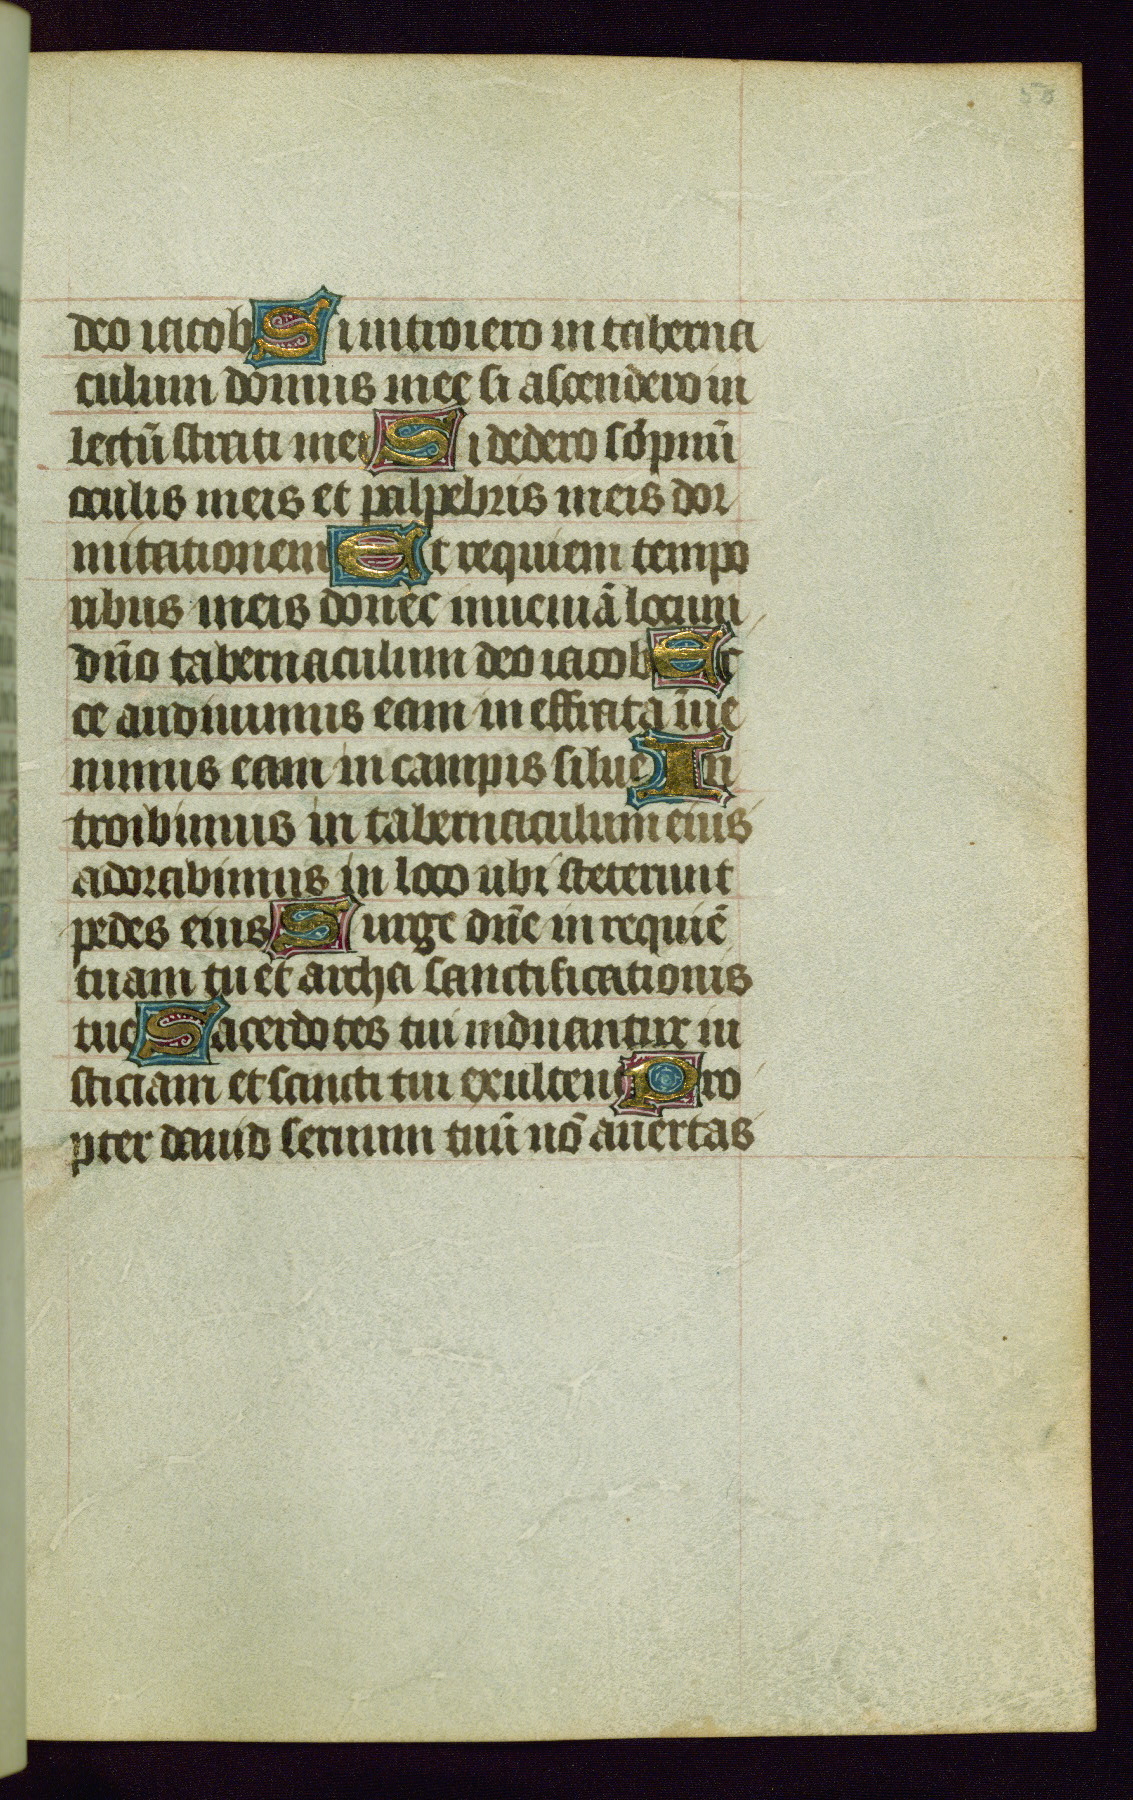 58
deo iacob Si introiero in taberna
culum domus mee si ascendero in
lectū strati mei Si dedero sōpnuȳ
oculis meis et palpebris meis dor
mitationem Et requiem tempo
ribus meis donec inueniā locum
dn̄o tabernaculum deo iacob Ec
ce audiuimus eam in effrata īue
nimus eam in campis silue In
troibimus in tabernaculum eius
adorabimus in loco ubi steterunt
pedes eius Surge dn̄e in requiē
tuam tu et archa sanctificationis
tue Sacerdotes tui induantur iu
sticiam et sancti tui exultent Pro
pter dauid seruum tuū nō auertas